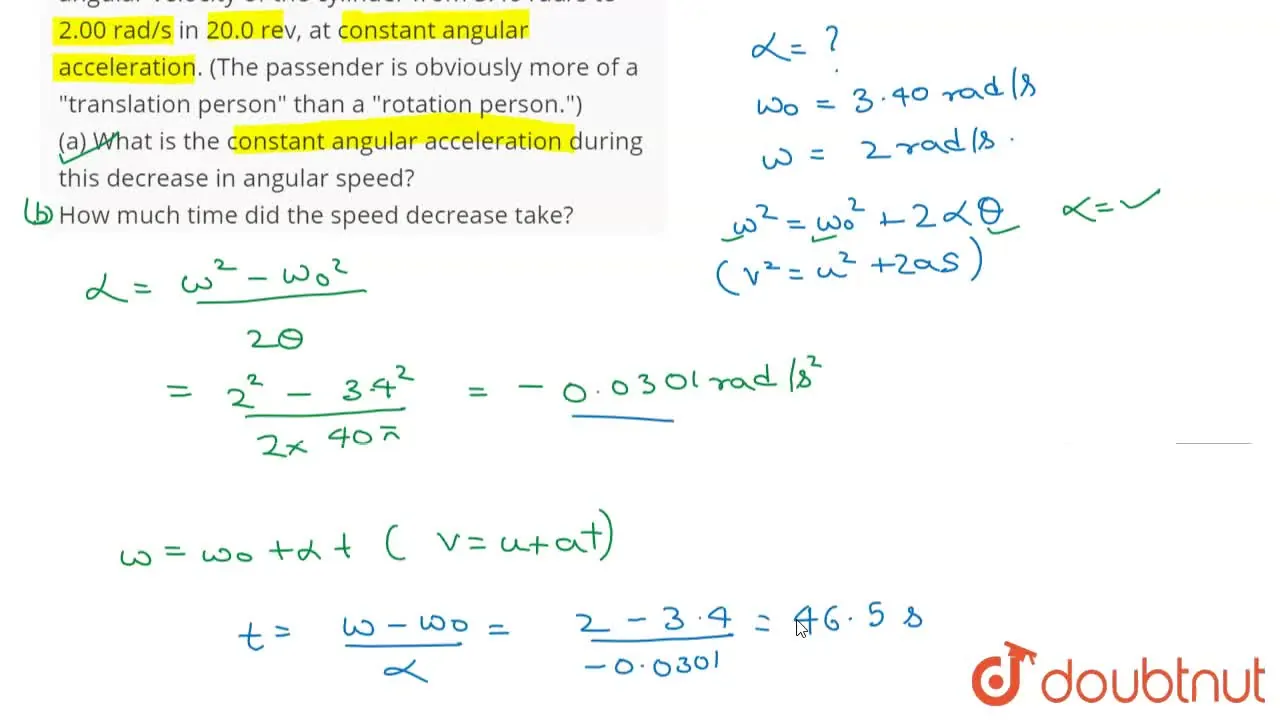 angular velocity of the cylinder from 3.40 rad/s to
2.00 rad/s in 20.0 rev, at constant angular
acceleration. (The passender is obviously more of a
"translation person" than a "rotation person.")
(a) What is the constant angular acceleration during
this decrease in angular speed?
(b) How much time did the speed decrease take?
α = ?
ω₀ = 3.40 rad/s
ω = 2 rad/s.
ω² = ω₀² + 2αθ α = ✓
(v² = u² + 2as)
α = ω² - ω₀² / 2θ
= 2² - 3.4² / 2× 40π = - 0.0301 rad/s²
ω = ω₀ + αt ( v = u + at)
t = ω - ω₀ / α = 2 - 3.4 / -0.0301 = 46.5 s
doubtnut